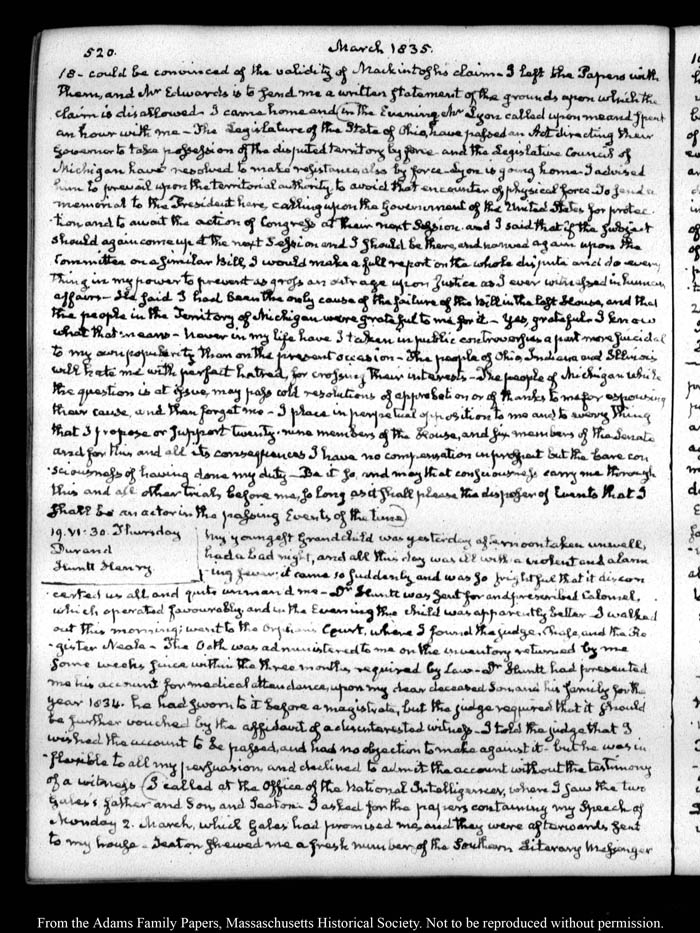 520.
March 1835.
18 - could be convinced of the validity of Mackintosh's claim - I left the Papers with
them, and Mr Edwards is to send me a written statement of the grounds upon which the
claim is disallowed. I came home and (in the Evening Mr Lyon called upon me and spent
an hour with me - The Legislature of the State of Ohio, have passed an Act directing their
Governor to take possession of the disputed territory by force - and the Legislative Council of
Michigan have resolved to make resistance, also by force - Lyon is going home - I advised
him to prevail upon the territorial authority, to avoid that encounter of physical force. To send a
memorial to the President here, calling upon the Government of the United States for protec-
-tion and to await the action of Congress at their next Session - and I said that if the subject
should again come up at the next Session and I should be there, and named again upon the
Committee on a similar Bill, I would make a full report on the whole dispute and do every
thing in my power to prevent as gross an outrage upon Justice as I ever witnessed in human
affairs - He said I had been the only cause of the failure of the bill in the last House, and that
the people in the Territory of Michigan were grateful to me for it - Yes, grateful - I know
what that means - Never in my life have I taken in public controversies a part more suicidal
to my own popularity than on the present occasion - The people of Ohio, Indiana and Illinois
will hate me with perfect hatred, for crossing their interests - The people of Michigan while
the question is at issue, may pass cold resolutions of approbation or of thanks to me for espousing
their cause, and then forget me - I place in perpetual opposition to me and to every thing
that I propose or support twenty-nine members of the House, and six members of the Senate
and for this and all its consequences I have no compensation in prospect but the bare con
-sciousness of having done my duty - Be it so, and may that consciousness carry me through
this and all other trials before me, so long as it shall please the disposer of Events that I
shall be an actor in the passing Events of the time)
19. VI. 30. Thursday
Durand
Huntt Henry
My youngest Grandchild was yesterday afternoon taken unwell,
had a bad night, and all this day was ill with a violent and alarm
-ing fever. it came so suddenly and was so frightful that it discon
-certed us all and quite unmand me - Dr Huntt was sent for and prescribed Calomel,
which operated favourably, and in the Evening the child was apparently better - I walked
out this morning; went to the Orphans Court, where I found the judge, Chase, and the Re
-gister Neale - The Oath was administered to me on the inventory returned by me
some weeks since within the three months required by Law - Dr Huntt had presented
me his account for medical attendance, upon my dear deceased Son and his family for the
year 1834. he had sworn to it before a magistrate, but the judge required that it should
be further vouched by the affidavit of a disinterested witness - I told the judge that I
wished the account to be passed, and had no objection to make against it - but he was in
-flexible to all my persuasion, and declined to admit the account without the testimony
of a witness (I called at the Office of the National Intelligencer, where I saw the two
Gales's father and Son, and Seaton - I asked for the papers containing my Speech of
Monday 2. March, which Gales had promised me, and they were afterwards sent
to my house - Seaton shewed me a fresh number of the Southern Literary Messenger
From the Adams Family Papers, Massachusetts Historical Society. Not to be reproduced without permission.